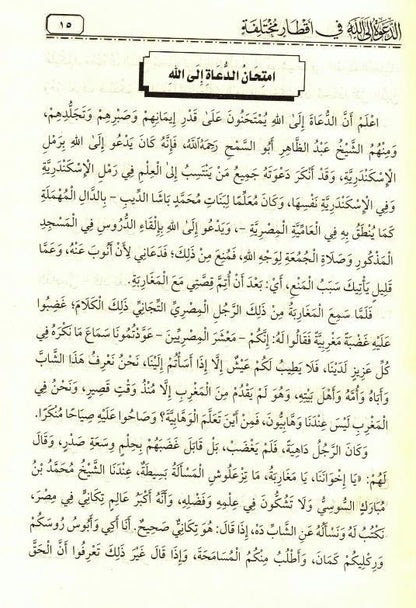 الدَّعْوَةُ إِلَى اللهِ فِي أَقْطَارٍ مُخْتَلِفَةٍ
١٥
امتحَانُ الدُّعَاةِ إِلَى الله
اعْلَمْ أَنَّ الدُّعَاةَ إِلَى اللهِ يُمْتَحَنُونَ عَلَى قَدْرِ إِيمَانِهِمْ وَصَبْرِهِمْ وَتَجَلُّدِهِمْ،
وَمِنْهُمُ الشَّيْخُ عَبْدُ الظَّاهِرِ أَبُو السَّمْحِ رَحِمَهُ اللهُ، فَإِنَّهُ كَانَ يَدْعُو إِلَى اللهِ بِرَمْلِ
الْإِسْكَنْدَرِيَّةِ، وَقَدْ أَنْكَرَ دَعْوَتَهُ جَمِيعُ مَنْ يَنْتَسِبُ إِلَى الْعِلْمِ فِي رَمْلِ الْإِسْكَنْدَرِيَّةِ
وَفِي الْإِسْكَنْدَرِيَّةِ نَفْسِهَا، وَكَانَ مُعَلِّمًا لِبَنَاتِ مُحَمَّدٍ بَاشَا الدِّيبِ - بِالدَّالِ الْمُهْمَلَةِ
كَمَا يُنْطَقُ بِهِ فِي الْعَامِّيَّةِ الْمِصْرِيَّةِ -، وَيَدْعُو إِلَى اللهِ بِإِلْقَاءِ الدُّرُوسِ فِي الْمَسْجِدِ
الْمَذْكُورِ وَصَلَاةِ الْجُمُعَةِ لِوَجْهِ اللهِ، فَمُنِعَ مِنْ ذَلِكَ؛ فَدَعَانِي لِأَنْ أَنُوبَ عَنْهُ، وَعَمَّا
قَلِيلٍ يَأْتِيكَ سَبَبُ الْمَنْعِ، أَيْ: بَعْدَ أَنْ أُتِمَّ قِصَّتِي مَعَ الْمَغَارِبَةِ.
فَلَمَّا سَمِعَ الْمَغَارِبَةُ مِنْ ذَلِكَ الرَّجُلِ الْمِصْرِيِّ التِّجَانِيِّ ذَلِكَ الْكَلَامَ؛ غَضِبُوا
عَلَيْهِ غَضْبَةً مَغْرِبِيَّةً فَقَالُوا لَهُ: إِنَّكُمْ - مَعْشَرَ الْمِصْرِيِّينَ - عَوَّدْتُمُونَا سَمَاعَ مَا نَكْرَهُ فِي
كُلِّ عَزِيزٍ لَدَيْنَا، فَلَا يَطِيبُ لَكُمْ عَيْشٌ إِلَّا إِذَا أَسَأْتُمْ إِلَيْنَا، نَحْنُ نَعْرِفُ هَذَا الشَّابَّ
وَأَبَاهُ وَأُمَّهُ وَأَهْلَ بَيْتِهِ، وَهُوَ لَمْ يَقْدُمْ مِنَ الْمَغْرِبِ إِلَّا مُنْذُ وَقْتٍ قَصِيرٍ، وَنَحْنُ فِي
الْمَغْرِبِ لَيْسَ عِنْدَنَا وَهَّابِيُّونَ، فَمِنْ أَيْنَ تَعَلَّمَ الْوَهَّابِيَّةَ؟ وَصَاحُوا عَلَيْهِ صِيَاحًا مُنْكَرًا.
وَكَانَ الرَّجُلُ دَاهِيَةً، فَلَمْ يَغْضَبْ، بَلْ قَابَلَ غَضَبَهُمْ بِحِلْمٍ وَسِعَةِ صَدْرٍ، وَقَالَ
لَهُمْ: «يَا إِخْوَانَنَا، يَا مَغَارِبَةُ، مَا تِزْعَلُوش الْمَسْأَلَةُ بَسِيطَةٌ، عِنْدَنَا الشَّيْخُ مُحَمَّدُ بْنُ
مُبَارَكٍ السُّوسِيُّ وَلَا تَشُكُّونَ فِي عِلْمِهِ وَفَضْلِهِ، وَأَنَّهُ أَكْبَرُ عَالِمٍ تِجَانِيٍّ فِي مِصْرَ،
نَكْتُبُ لَهُ وَنَسْأَلُهُ عَنِ الشَّابِّ دَه، إِذَا قَالَ: هُوَ تِجَانِيٌّ صَحِيحٌ. أَنَا آجِي وَأَبُوسُ رُوسَكُمْ
وَرِجْلِيكُمْ كَمَان، وَأَطْلُبُ مِنْكُمُ الْمُسَامَحَةَ، وَإِذَا قَالَ غَيْرَ ذَلِكَ تَعْرِفُوا أَنَّ الْحَقَّ